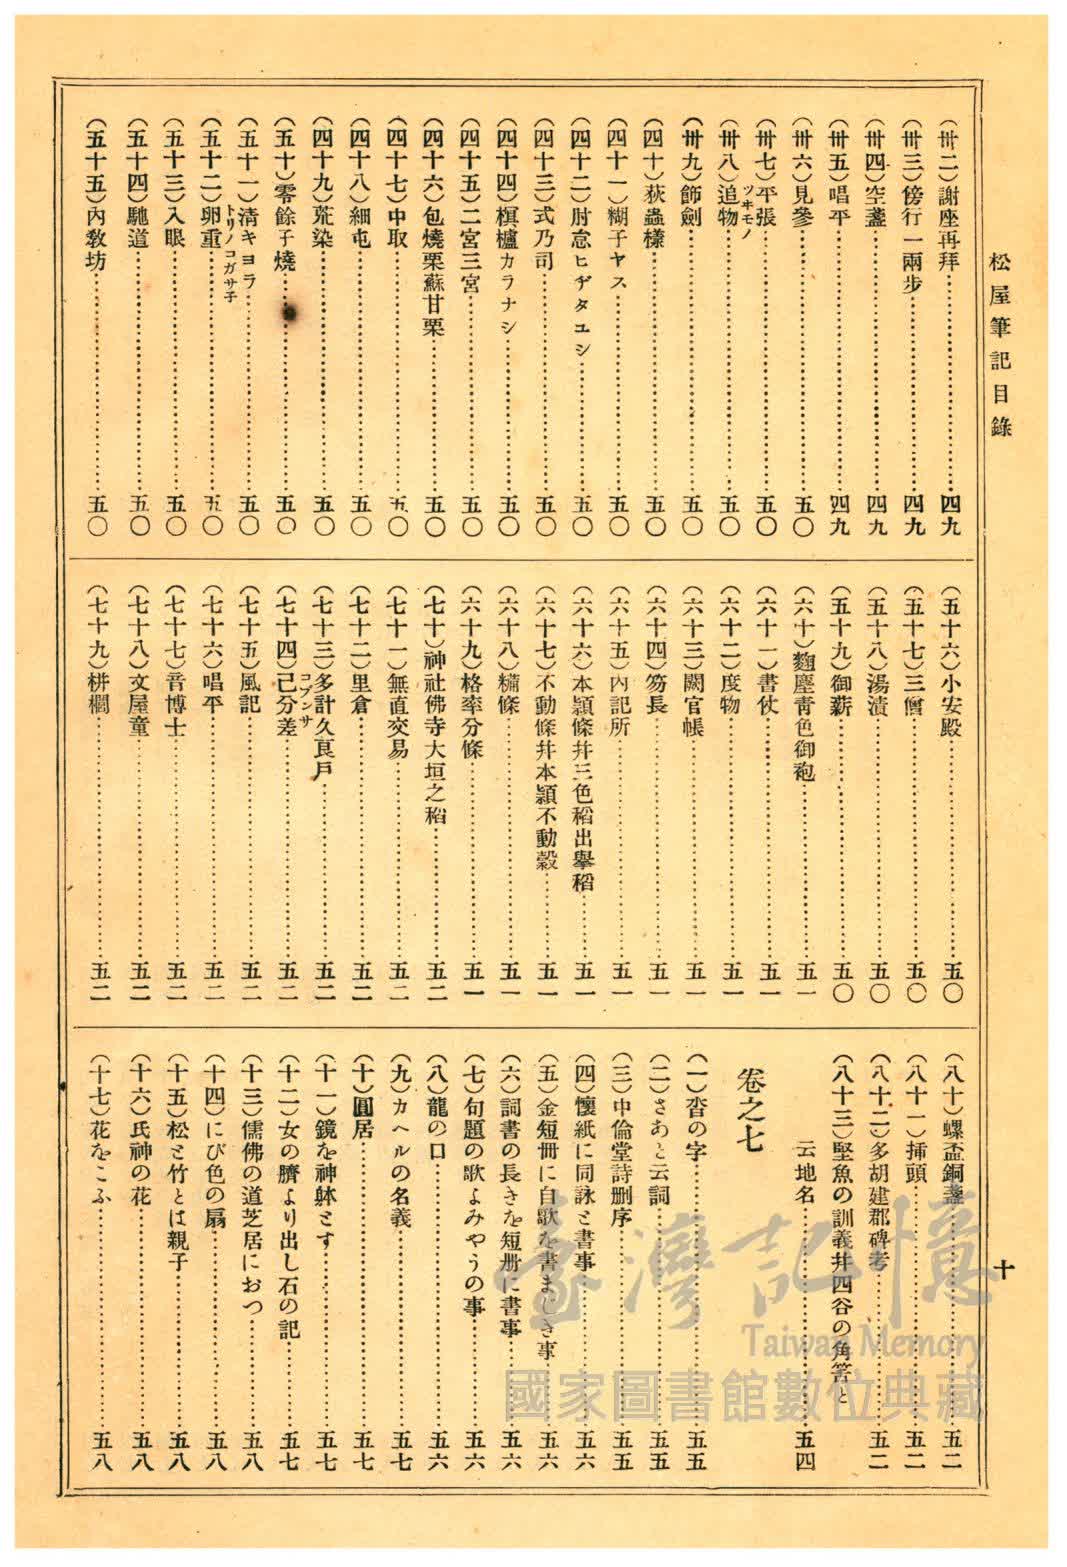 松屋筆記目錄
十
(卅二)謝座再拜……四九
(卅三)傍行一兩步……四九
(卅四)空盞……四九
(卅五)唱平……四九
(卅六)見參……五〇
(卅七)平張……五〇
(卅八)追物ツヰモノ……五〇
(卅九)飾劍……五〇
(四十)荻蟲樣……五〇
(四十一)糊子ヤス……五〇
(四十二)肘怠ヒヂタユシ……五〇
(四十三)式乃司……五〇
(四十四)榠樝カラナシ……五〇
(四十五)二宮三宮……五〇
(四十六)包燒栗蘇甘栗……五〇
(四十七)中取……五〇
(四十八)細屯……五〇
(四十九)荒染……五〇
(五十)零餘子燒……五〇
(五十一)淸キヨラ……五〇
(五十二)卵重トリノコガサ子……五〇
(五十三)入眼……五〇
(五十四)馳道……五〇
(五十五)內敎坊……五〇
(五十六)小安殿……五〇
(五十七)三儈……五〇
(五十八)湯漬……五〇
(五十九)御薪……五〇
(六十)麴塵靑色御袍……五一
(六十一)書仗……五一
(六十二)度物……五一
(六十三)闕官帳……五一
(六十四)笏長……五一
(六十五)內記所……五一
(六十六)本頴條幷三色稻出擧稻……五一
(六十七)不動條幷本頴不動穀……五一
(六十八)糒條……五一
(六十九)格率分條……五一
(七十)神社佛寺大垣之稻……五二
(七十一)無直交易……五二
(七十二)里倉……五二
(七十三)多計久良戶……五二
(七十四)己分差コブンサ……五二
(七十五)風記……五二
(七十六)唱平……五二
(七十七)音博士……五二
(七十八)文屋童……五二
(七十九)栟櫚……五二
(八十)螺盃銅盞……五二
(八十一)揷頭……五二
(八十二)多胡建郡碑考……五二
(八十三)堅魚の訓義幷四谷の角筈と
云地名……五四
卷之七
(一)沓の字……五五
(二)さあと云詞……五五
(三)中倫堂詩刪序……五五
(四)懷紙に同詠と書事……五六
(五)金短冊に自歌を書まじき事……五六
(六)詞書の長きを短册に書事……五六
(七)句題の歌よみやうの事……五六
(八)龍の口……五六
(九)カヘルの名義……五七
(十)圓居……五七
(十一)鏡を神躰とす……五七
(十二)女の臍より出し石の記……五七
(十三)儒佛の道芝居におつ……五八
(十四)にび色の扇……五八
(十五)松と竹とは親子……五八
(十六)氏神の花……五八
(十七)花をこふ……五八
臺灣記憶
Taiwan Memory
國家圖書館數位典藏